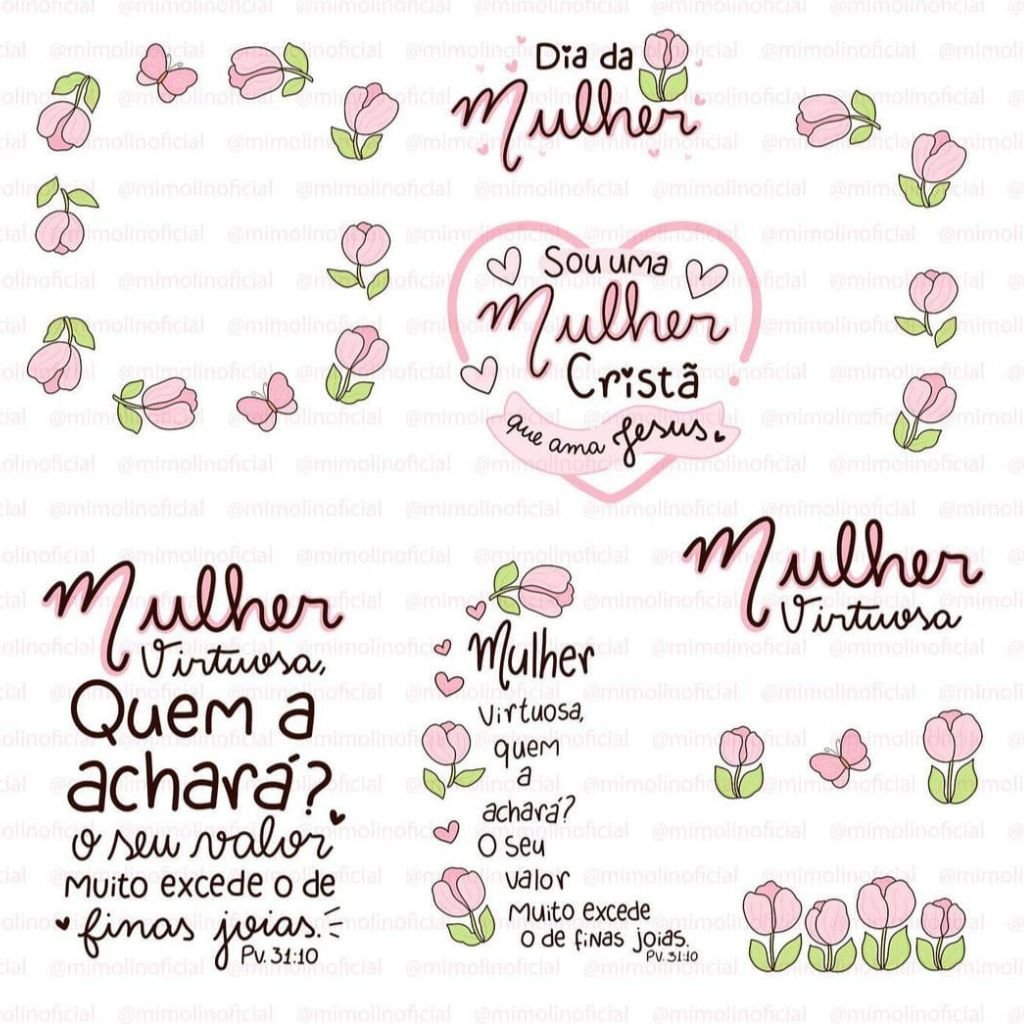 Dia da
Mulher
Sou uma
Mulher
Cristã
que ama Jesus
Mulher
Virtuosa,
Quem a
achará?
O seu valor
Muito excede o de
finas joias.
Pv. 31:10
Mulher
Virtuosa,
quem
a
achará?
O seu
valor
Muito excede
o de finas joias.
Pv. 31:10
Mulher
Virtuosa
@mimolinoficial